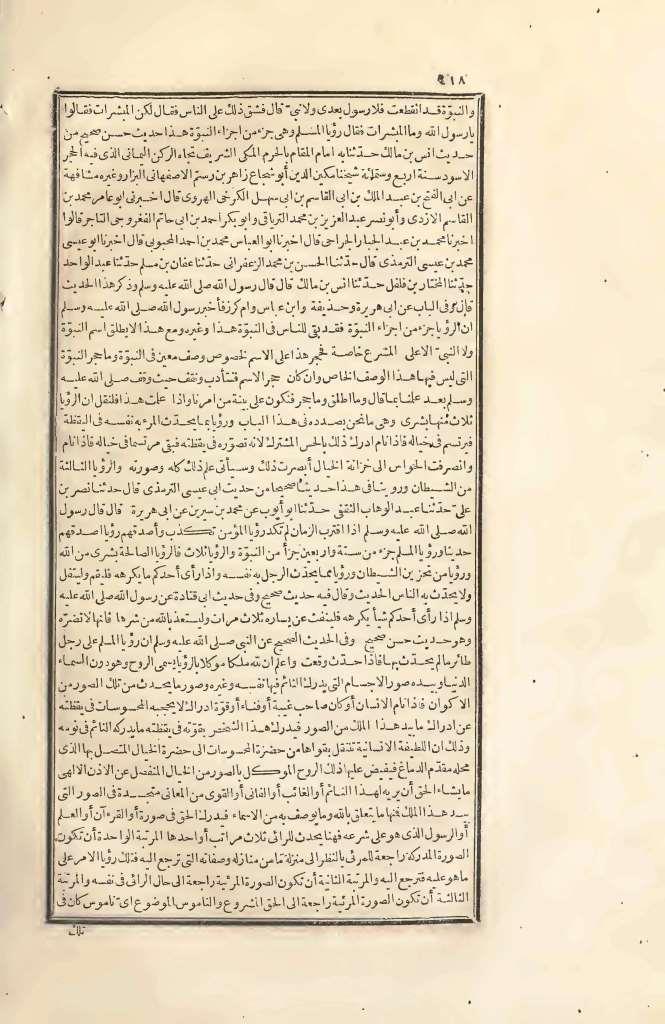 ٤١٨
والنبوّة قد انقطعت فلا رسول بعدى ولا نبىّ قال فشق ذلك على الناس فقال لكن المبشرات فقالوا
يا رسول الله وما المبشرات فقال رؤيا المسلم وهى جزء من اجزاء النبوّة هذا حديث حسن صحيح من
حديث انس بن مالك حدثنا به امام المقام بالحرم المكى الشريف تجاه الركن اليمانى الذى فيه الحجر
الاسود سنة اربع وستمائة شيخنا مكين الدين أبو شجاع زاهر بن رستم الاصفهانى البزار وغيره مشافهة
عن ابى الفتح بن عبد الملك بن ابى القاسم بن ابى سهل الكرخى الهروى قال اخبرنى ابو عامر محمد بن
القاسم الازدى وأبو نصر عبد العزيز بن محمد الترياقى وابو بكر احمد بن ابى حاتم الفغورجى التاجر قالوا
اخبرنا محمد بن عبد الجبار الجراحى قال اخبرنا ابو العباس محمد بن احمد المحبوبى قال اخبرنا ابو عيسى
محمد بن عيسى الترمذى قال حدّثنا الحسن بن محمد الزعفرانى حدّثنا عفان بن مسلم حدّثنا عبد الواحد
حدّثنا المختار بن فلفل حدّثنا انس بن مالك قال قال رسول الله صلى الله عليه وسلم وذكر هذا الحديث
قال وفى الباب عن ابى هريرة وحذيفة وابن عباس وام كرز فأخبر رسول الله صلى الله عليه وسلم
ان الرؤيا جزء من اجزاء النبوّة فقد بقى للناس فى النبوّة هذا وغيره ومع هذا لا يطلق اسم النبوّة
ولا النبىّ الا على المشرع خاصة فحجر هذا على الاسم لخصوص وصف معين فى النبوّة وما حجر النبوّة
التى ليس فيها هذا الوصف الخاص وان كان حجر الاسم فنتأدب ونقف حيث وقف صلى الله عليه
وسلم بعد علمنا بما قال وما اطلق وما حجر فنكون على بينة من امرنا واذا علمت هذا فلنقل ان الرؤيا
ثلاث منها بشرى وهى ما نحن بصدده فى هذا الباب ورؤيا بما يحدّث المرء به نفسه فى اليقظة
فيرتسم فى خياله فاذا نام ادرك ذلك بالحس المشترك لانه تصوّره فى يقظته فبقى مرتسما فى خياله فاذا نام
وانصرفت الحواس الى خزانة الخيال أبصرت ذلك وسيأتى علم ذلك كله وصورته والرؤيا الثالثة
من الشيطان وروينا فى هذا حديثا صحيحا من حديث ابى عيسى الترمذى قال حدثنا نصر بن
علىّ حدّثنا عبد الوهاب الثقفى حدّثنا ابو أيوب عن محمد بن سيرين عن ابى هريرة قال قال رسول
الله صلى الله عليه وسلم اذا اقترب الزمان لم تكد رؤيا المؤمن تكذب وأصدقهم رؤيا اصدقهم
حديثا ورؤيا المسلم جزء من ستة واربعين جزأ من النبوّة والرؤيا ثلاث فالرؤيا الصالحة بشرى من الله
ورؤيا من تحزين الشيطان ورؤيا مما يحدّث الرجل به نفسه واذا رأى أحدكم ما يكرهه فليقم وليتفل
ولا يحدّث به الناس الحديث وقال فيه حديث صحيح وفى حديث ابى قتادة عن رسول الله صلى الله عليه
وسلم اذا رأى أحدكم شيأ يكرهه فلينفث عن يساره ثلاث مرات وليستعذ بالله من شرها فانها لا تضرّه
وهو حديث حسن صحيح وفى الحديث الصحيح عن النبى صلى الله عليه وسلم ان رؤيا المسلم على رجل
طائر ما لم يحدّث بها فاذا حدّث وقعت واعلم ان لله ملكا موكلا بالرؤيا يسمى الروح وهو دون السماء
الدنيا وبيده صور الاجسام التى يدرك النائم فيها نفسه وغيره وصور ما يحدث من تلك الصور من
الاكوان فاذا نام الانسان أو كان صاحب غيبة أو فناء أو قوّة ادراك لا يحجبه المحسوسات فى يقظته
عن ادراك ما بيد هذا الملك من الصور فيدرك هذا الشخص بقوّته فى يقظته ما يدركه النائم فى نومه
وذلك ان اللطيفة الانسانية تنتقل بقواها من حضرة المحسوسات الى حضرة الخيال المتصل بها الذى
محله مقدّم الدماغ فيفيض عليها ذلك الروح الموكل بالصور من الخيال المنفصل عن الاذن الالهى
ما يشاء الحق أن يريه لهذا النائم أو الغائب أو الفانى أو القوى من المعانى متجسدة فى الصور التى
بيد هذا الملك فمنها ما يتعلق بالله وما يوصف به من الاسماء فيدرك الحق فى صورة أو القرءآن أو العلم
أو الرسول الذى هو على شرعه فهنا يحدث للرائى ثلاث مراتب أو احدها المرتبة الواحدة أن تكون
الصورة المدركة راجعة للمرئى بالنظر الى منزلة مّا من منازله وصفاته التى ترجع اليه فتلك رؤيا الامر على
ما هو عليه فترجع اليه والمرتبة الثانية أن تكون الصورة المرئية راجعة الى حال الرائى فى نفسه والمرتبة
الثالثة أن تكون الصورة المرئية راجعة الى الحق المشروع والناموس الموضوع اىّ ناموس كان فى
تلك